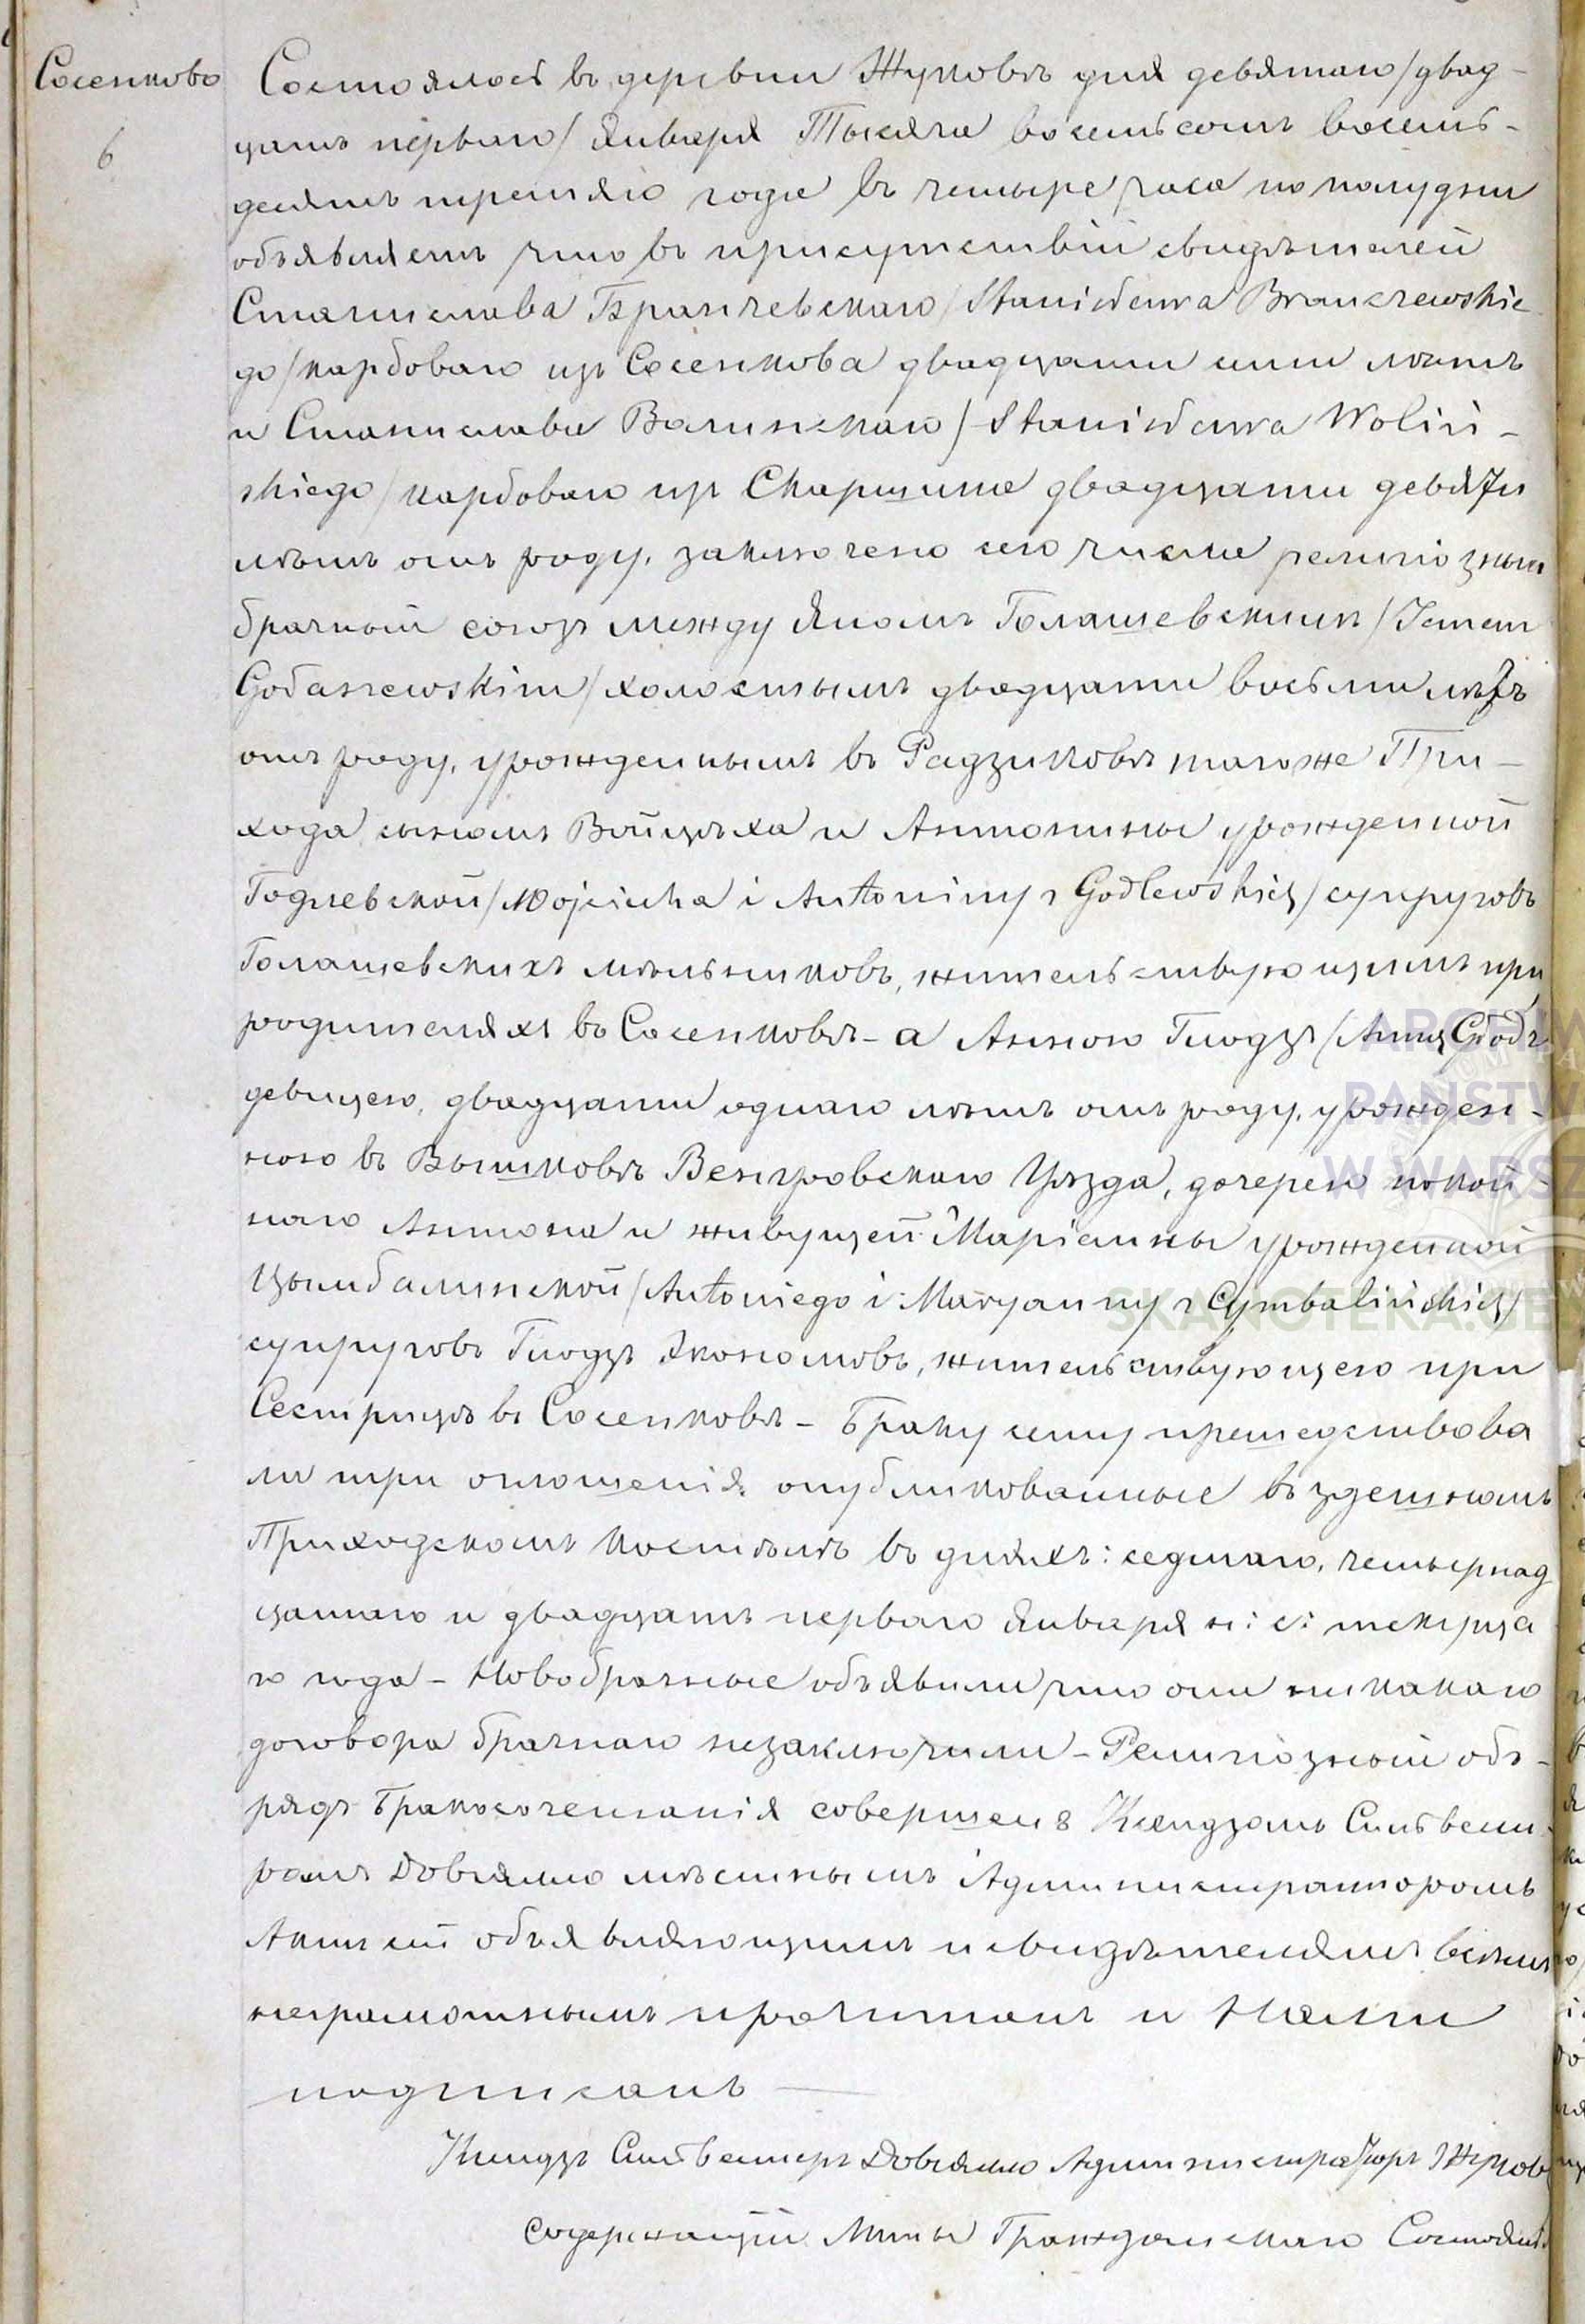 Сосенково
6
Состоялось въ деревни Жуковѣ дня девятаго/двад-
цать перваго/ Января Тысяча восемьсотъ восемь-
десятъ третяго года въ четыре часа по полудни
объявляемъ что въ присутствіи свидѣтелей
Станислава Бранчевскаго/Stanisława Branczewskie
go/карбоваго изъ Сосенкова двадцати сими лѣтъ
и Станислава Валинскаго/Stanisława Woliń-
skiego/карбоваго изъ двадцати девяти
лѣтъ отъ роду, заключено сего числа религіозный
брачный союзъ между Яномъ Голашевскимъ/Janem
Gołaszewskim/холостымъ двадцати восьми лѣтъ
отъ роду, урожденнымъ въ Радзиковѣ тагоже При-
хода сыномъ Войцѣха и Антонины урожденной
Годлевской/Wojciecha i Antoniny z Godlewskich/супруговъ
Голашевскихъ мѣльниковъ, жительствующимъ при
родителяхъ въ Сосенковѣ - а Анною Глодзъ/Anną Głodz
девицею, двадцати однаго лѣтъ отъ роду, урожден-
ною въ Вышковѣ Венгровскаго Уѣзда, дочерею покой-
наго Антона и живущей Маріанны урожденной
Цымбалинской/Antoniego i Maryanny z Cymbalińskich/
супруговъ Глодзъ Экономовъ, жительствующею при
Сестрицѣ въ Сосенковѣ - Браку сему предшествова
ли три оглошенія опубликованные въ здешномъ
Приходскомъ Костѣлѣ въ дняхъ: седмаго, четырнад
цатаго и двадцать перваго Января н: с: текуща
го года - Новобрачные объявили что они никакаго
договора брачнаго незаключили - Религіозный об-
рядъ Бракосочетанія совершенъ Ксендзомъ Сильвест
ромъ Довялло мѣстнымъ Администраторомъ
Актъ сей объявляющимъ и свидѣтелямъ всѣмъ
неграмотнымъ прочитанъ и Нами
подписанъ
Ксендзъ Сильвестеръ Довялло Администраторъ Жуков
Содержащій Акты Гражданскаго Состоянія
ARCHIW
PAŃSTW
W WARSZ
SKANOTEKA.GE